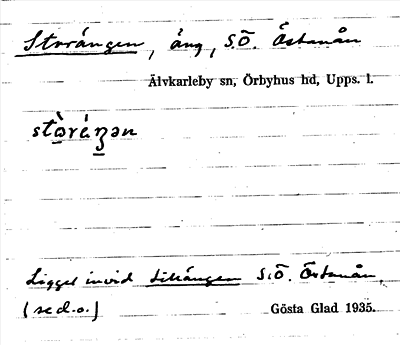 Storängen, äng, S.Ö. Östanån
Älvkarleby sn, Örbyhus hd, Upps. l.
stòráŋən
Ligger invid Likängen S.Ö. Östanån.
(se d.o.)
Gösta Glad 1935.